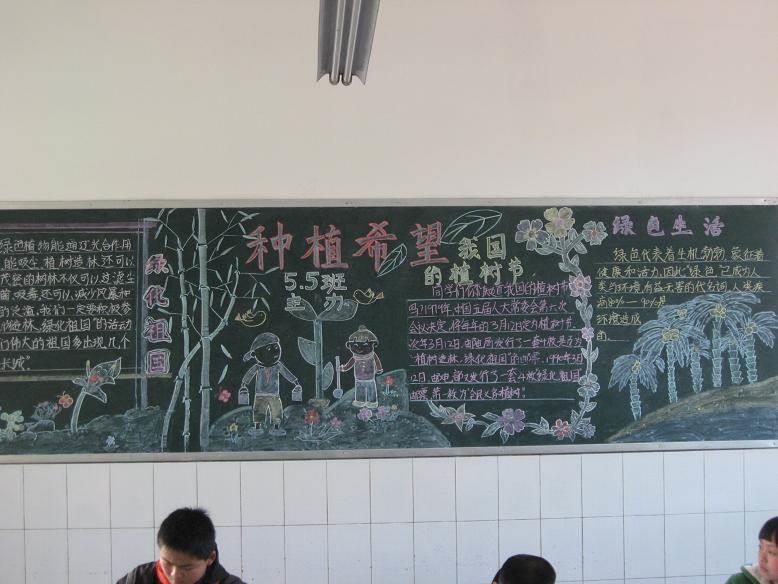 绿色植物能通过光合作用
能吸尘,植树造林,还可以
茂密的树林不仅可以过滤尘
还可以减少风暴和
我们一定要积极参
造林,绿化祖国的活动
伟大的祖国多出现几个
长城"
绿化祖国
种植希望
5.5班
主办
我国
的植树节
同学们你知道我国的植树节
吗?1979年,中国五届人大常委会第六次
会议决定,将每年的3月12日定为植树节
次年3月12日,邮电部发行了一套4枚是为
"植树造林,绿化祖国"的邮票,1990年3月
12日,邮电部又发行了一套4枚绿化祖国
邮票,第一枚为"全民义务植树"。
绿色生活
绿色代表着生机勃勃,象征着
健康和活力,因此"绿色"已成为人
类与环境有益无害的代名词,人类疾
病80%—90%是
环境造成
的